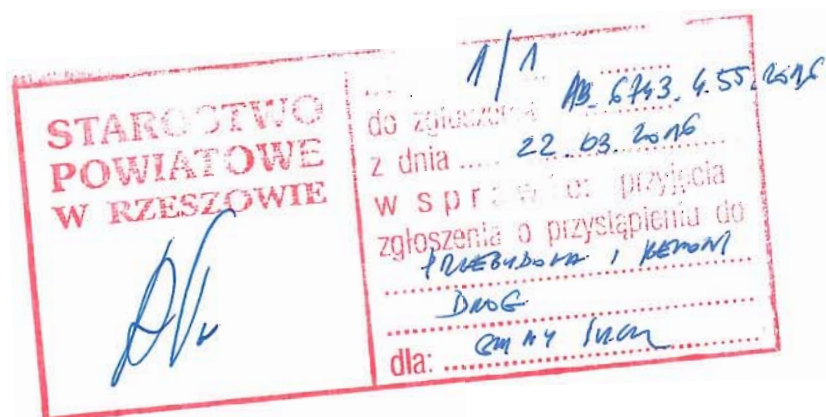 STAROSTWO
POWIATOWE
W RZESZOWIE
1/1
do zgłoszenia AB.6743.4.55.2016
z dnia ..... 22.03.2016
w sprawie: przyjęcia
zgłoszenia o przystąpieniu do
PRZEBUDOWA I REMONT
DRÓG
dla: GMINY